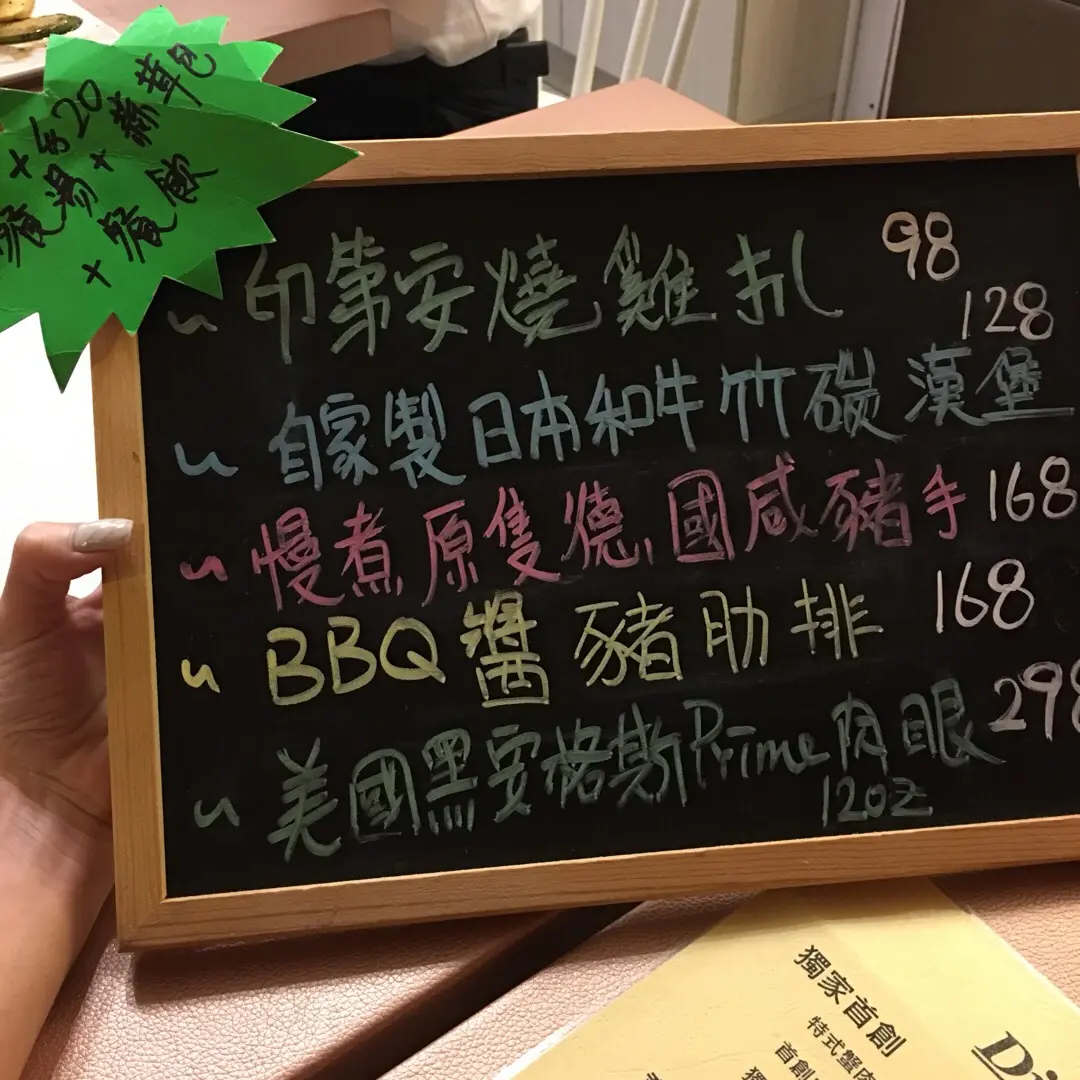 +$20
餐湯+蒜茸包
+餐飲
印第安燒雞扒 98
自家製日本和牛竹碳漢堡 128
慢煮原隻德國咸豬手 168
BBQ醬豬肋排 168
美國黑安格斯Prime肉眼 298
12oz
獨家首創
特式蟹肉
首創
獨
Di